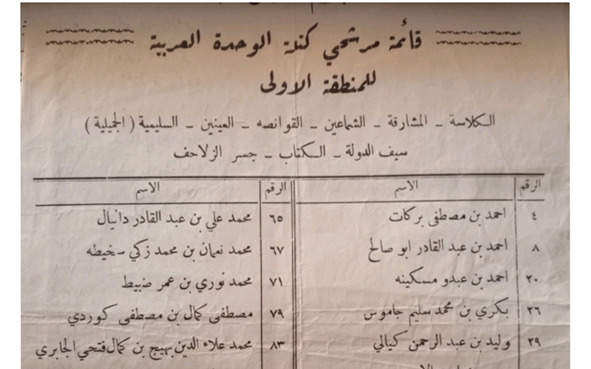 قائمة مرشحي كتلة الوحدة العربية
للمنطقة الاولى
الكلاسة - المشارقة - الشماعين - القوانصه - العينين - السليمية (الجميلية)
سيف الدولة - الكتاب - جسر الزلاحف
الرقم الاسم الرقم الاسم
٤ احمد بن مصطفى بركات ٦٥ محمد علي بن عبد القادر دانيال
٨ احمد بن عبد القادر ابو صالح ٦٧ محمد نعمان بن محمد زكي سخيطه
٢٠ احمد بن عبدو مسكينه ٧١ محمد نوري بن عمر ضبيط
٢٦ بكري بن محمد سليم جاموس ٧٩ مصطفى كمال بن مصطفى كوردي
٢٩ وليد بن عبد الرحمن كيالي ٨٣ محمد علاء الدين بن بهيج بن كمال فتحي الجابري